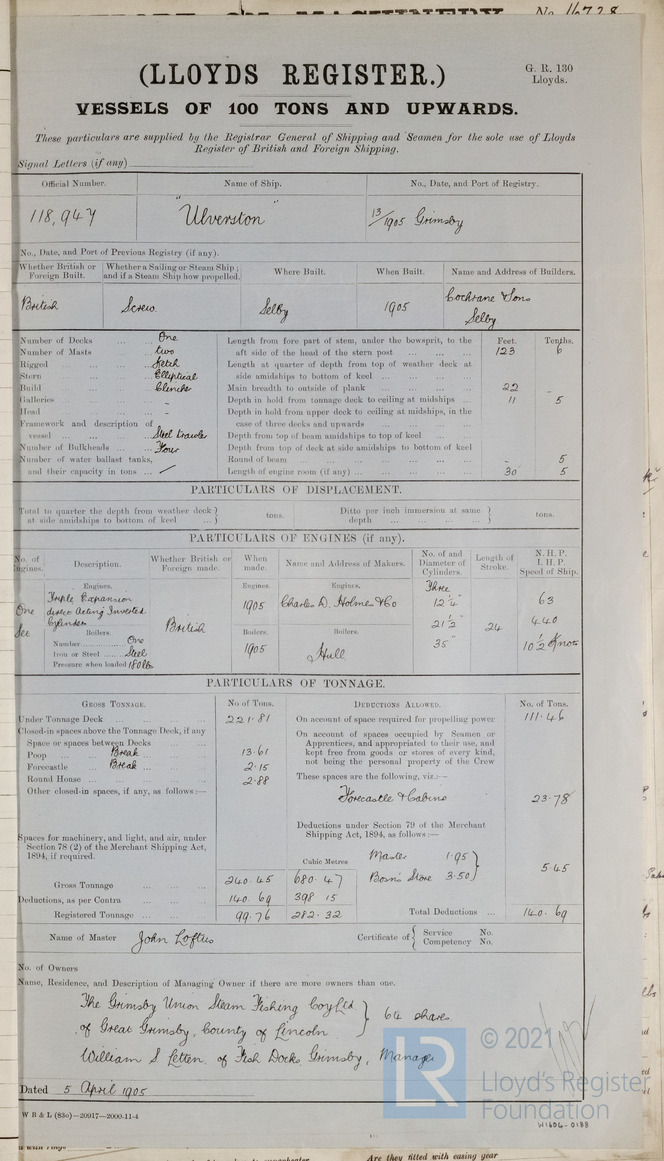 No 16728
(LLOYDS REGISTER.)
G. R. 130
Lloyds.
VESSELS OF 100 TONS AND UPWARDS.
These particulars are supplied by the Registrar General of Shipping and Seamen for the sole use of Lloyds
Register of British and Foreign Shipping.
Signal Letters (if any)
Official Number. Name of Ship. No., Date, and Port of Registry.
118,947 "Ulverston" 13/1905 Grimsby
No., Date, and Port of Previous Registry (if any).
Whether British or Foreign Built. Whether a Sailing or Steam Ship; and if a Steam Ship how propelled. Where Built. When Built. Name and Address of Builders.
British Screw Selby 1905 Cochrane & Sons
Selby
Number of Decks ... ... One
Number of Masts ... ... two
Rigged ... ... Ketch
Stern ... ... Elliptical
Build ... ... Clincher
Galleries ... ... –
Head ... ... –
Framework and description of
vessel ... ... Steel trawler
Number of Bulkheads ... Four
Number of water ballast tanks,
and their capacity in tons ...
Feet. Tenths.
Length from fore part of stem, under the bowsprit, to the
aft side of the head of the stern post ... ... 123 6
Length at quarter of depth from top of weather deck at
side amidships to bottom of keel ... ...
Main breadth to outside of plank ... ... 22 –
Depth in hold from tonnage deck to ceiling at midships ... 11 5
Depth in hold from upper deck to ceiling at midships, in the
case of three decks and upwards ... ...
Depth from top of beam amidships to top of keel ...
Depth from top of deck at side amidships to bottom of keel
Round of beam ... ... – 5
Length of engine room (if any) ... ... 30 5
PARTICULARS OF DISPLACEMENT.
Total to quarter the depth from weather deck at side amidships to bottom of keel ... } tons. Ditto per inch immersion at same depth ... } tons.
PARTICULARS OF ENGINES (if any).
No. of Engines. Description. Whether British or Foreign made. When made. Name and Address of Makers. No. of and Diameter of Cylinders. Length of Stroke. N. H. P. I. H. P. Speed of Ship.
Engines. Engines. Engines. Three
One Triple Expansion direct Acting Inverted Cylinder British 1905 Charles D. Holmes & Co 12 1/4" 63
21 1/2" 24 440
Boilers. Boilers. Boilers.
Number One
Iron or Steel Steel 1905 Hull 35" 10 1/2 Knots
Pressure when loaded 180 lbs
PARTICULARS OF TONNAGE.
GROSS TONNAGE. No of Tons. DEDUCTIONS ALLOWED. No. of Tons.
Under Tonnage Deck ... ... 221.81
Closed-in spaces above the Tonnage Deck, if any
Space or spaces between Decks ... ...
Poop ... Break ... 13.61
Forecastle ... Break ... 2.15
Round House ... ... 2.88
Other closed-in spaces, if any, as follows:—
Spaces for machinery, and light, and air, under
Section 78 (2) of the Merchant Shipping Act,
1894, if required.
On account of space required for propelling power 111.46
On account of spaces occupied by Seamen or
Apprentices, and appropriated to their use, and
kept free from goods or stores of every kind,
not being the personal property of the Crew
These spaces are the following, viz.:—
Forecastle & Cabins 23.78
Deductions under Section 79 of the Merchant
Shipping Act, 1894, as follows:—
Cubic Metres
Master 1.95 }
Bosn's Store 3.50 } 5.45
Gross Tonnage ... ... 240.45 680.47
Deductions, as per Contra ... 140.69 398 15
Registered Tonnage ... ... 99.76 282.32 Total Deductions ... 140.69
Name of Master John Loftus Certificate of { Service No.
Competency No.
No. of Owners
Name, Residence, and Description of Managing Owner if there are more owners than one.
The Grimsby Union Steam Fishing Coy Ltd } 64 shares
of Great Grimsby, County of Lincoln
William S Letten, of Fish Docks, Grimsby, Manager
Dated 5 April 1905
W B & L (83o)—20917—2000-11-4
© 2021
LR
Lloyd's Register
Foundation
W1606-0188
Are they fitted with easing gear